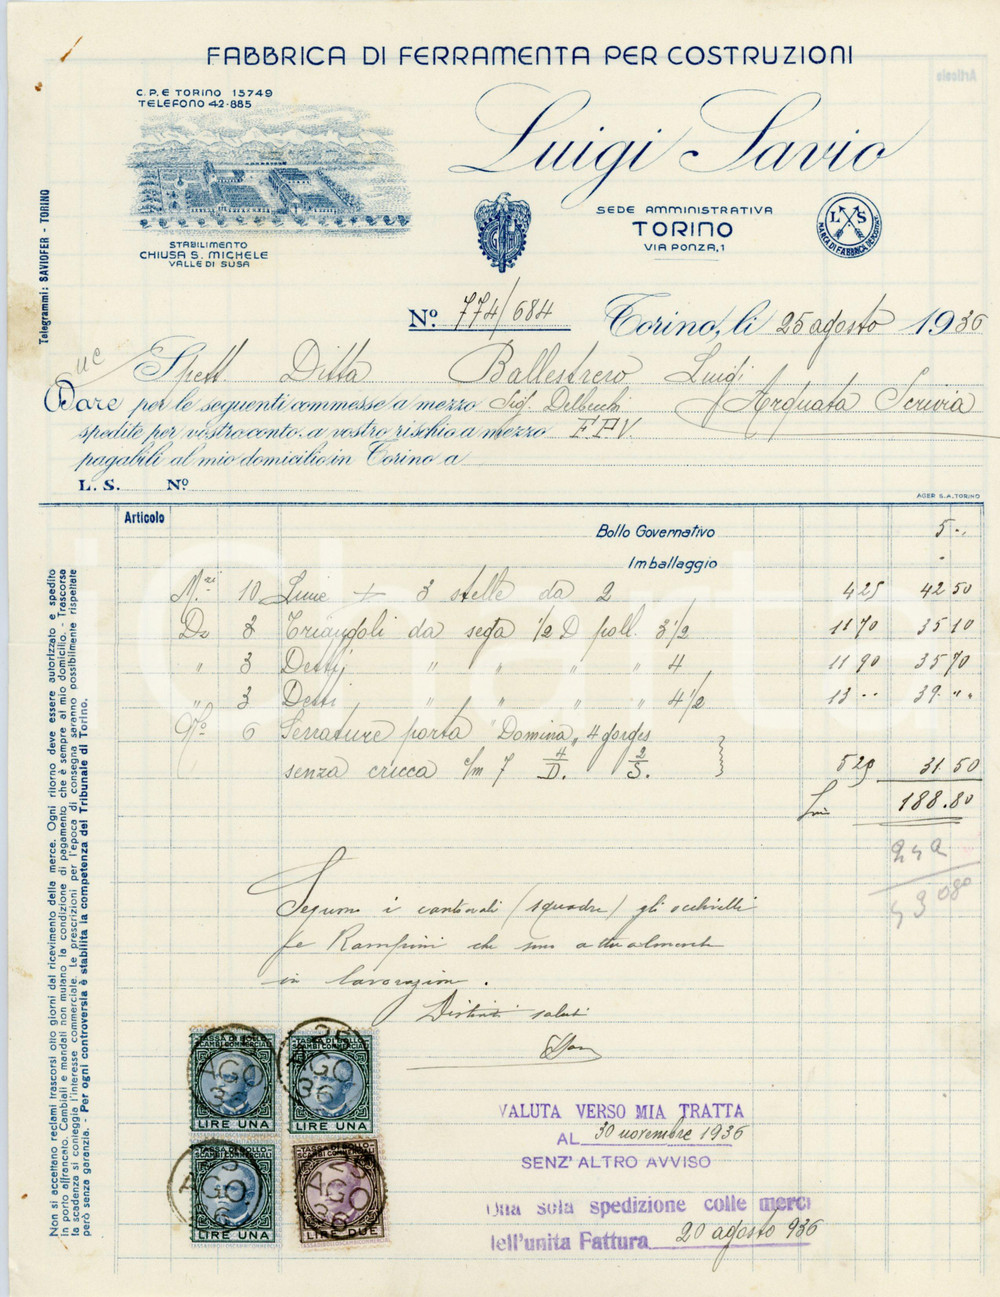 FABBRICA DI FERRAMENTA PER COSTRUZIONI
C.P.E TORINO 15749
TELEFONO 42-885
Luigi Savio
STABILIMENTO
CHIUSA S. MICHELE
VALLE DI SUSA
SEDE AMMINISTRATIVA
TORINO
VIA PONZA, 1
L S
MARCA DI FABBRICA DEPOSITATA
Telegrammi: SAVIOFER - TORINO
No. 774/684
Torino, li 25 agosto 1936
Spett. Ditta Ballestrero Luigi
Dare per le seguenti commesse a mezzo Sig. Delbecchi Arquata Scrivia
spedite per vostro conto, a vostro rischio a mezzo
pagabili al mio domicilio in Torino a
L. S. No
AGER S.A. TORINO
Articolo
Bollo Governativo 5..
Imballaggio
10 Lime 3 stelle da 2 425 42 50
Do 3 Triangoli da sega 1/2 D poll. 3 1/2 11 70 35 10
" 3 Detti " " " " 4 11 90 35 70
" 3 Detti " " " " 4 1/2 13 .. 39 ..
No 6 Serrature porta "Domina" 4 gorges
senza cricca c/m 7 4/D. 2/S. 525 31 50
188.80
Seguono i cantonali (squadre) gli occhielli
e Rampini che sono attualmente
in lavorazione.
Distinti saluti
Non si accettano reclami trascorsi otto giorni dal ricevimento della merce. Ogni ritorno deve essere autorizzato e spedito
in porto affrancato. Cambiali e mandati non mutano la condizione di pagamento che è sempre al mio domicilio. - Trascorsa
la scadenza si conteggia l'interesse commerciale. Le prescrizioni per l'epoca di consegna saranno possibilmente rispettate
però senza garanzia. - Per ogni controversia è stabilita la competenza del Tribunale di Torino.
TASSA DI BOLLO
SCAMBI COMMERCIALI
LIRE UNA
25 AGO 36
TASSA DI BOLLO
SCAMBI COMMERCIALI
LIRE UNA
25 AGO 36
TASSA DI BOLLO
SCAMBI COMMERCIALI
LIRE UNA
AGO
LIRE DUE
25 AGO 36
VALUTA VERSO MIA TRATTA
AL 30 novembre 1936
SENZ' ALTRO AVVISO
Una sola spedizione colle merci
dell'unita Fattura 20 agosto 936